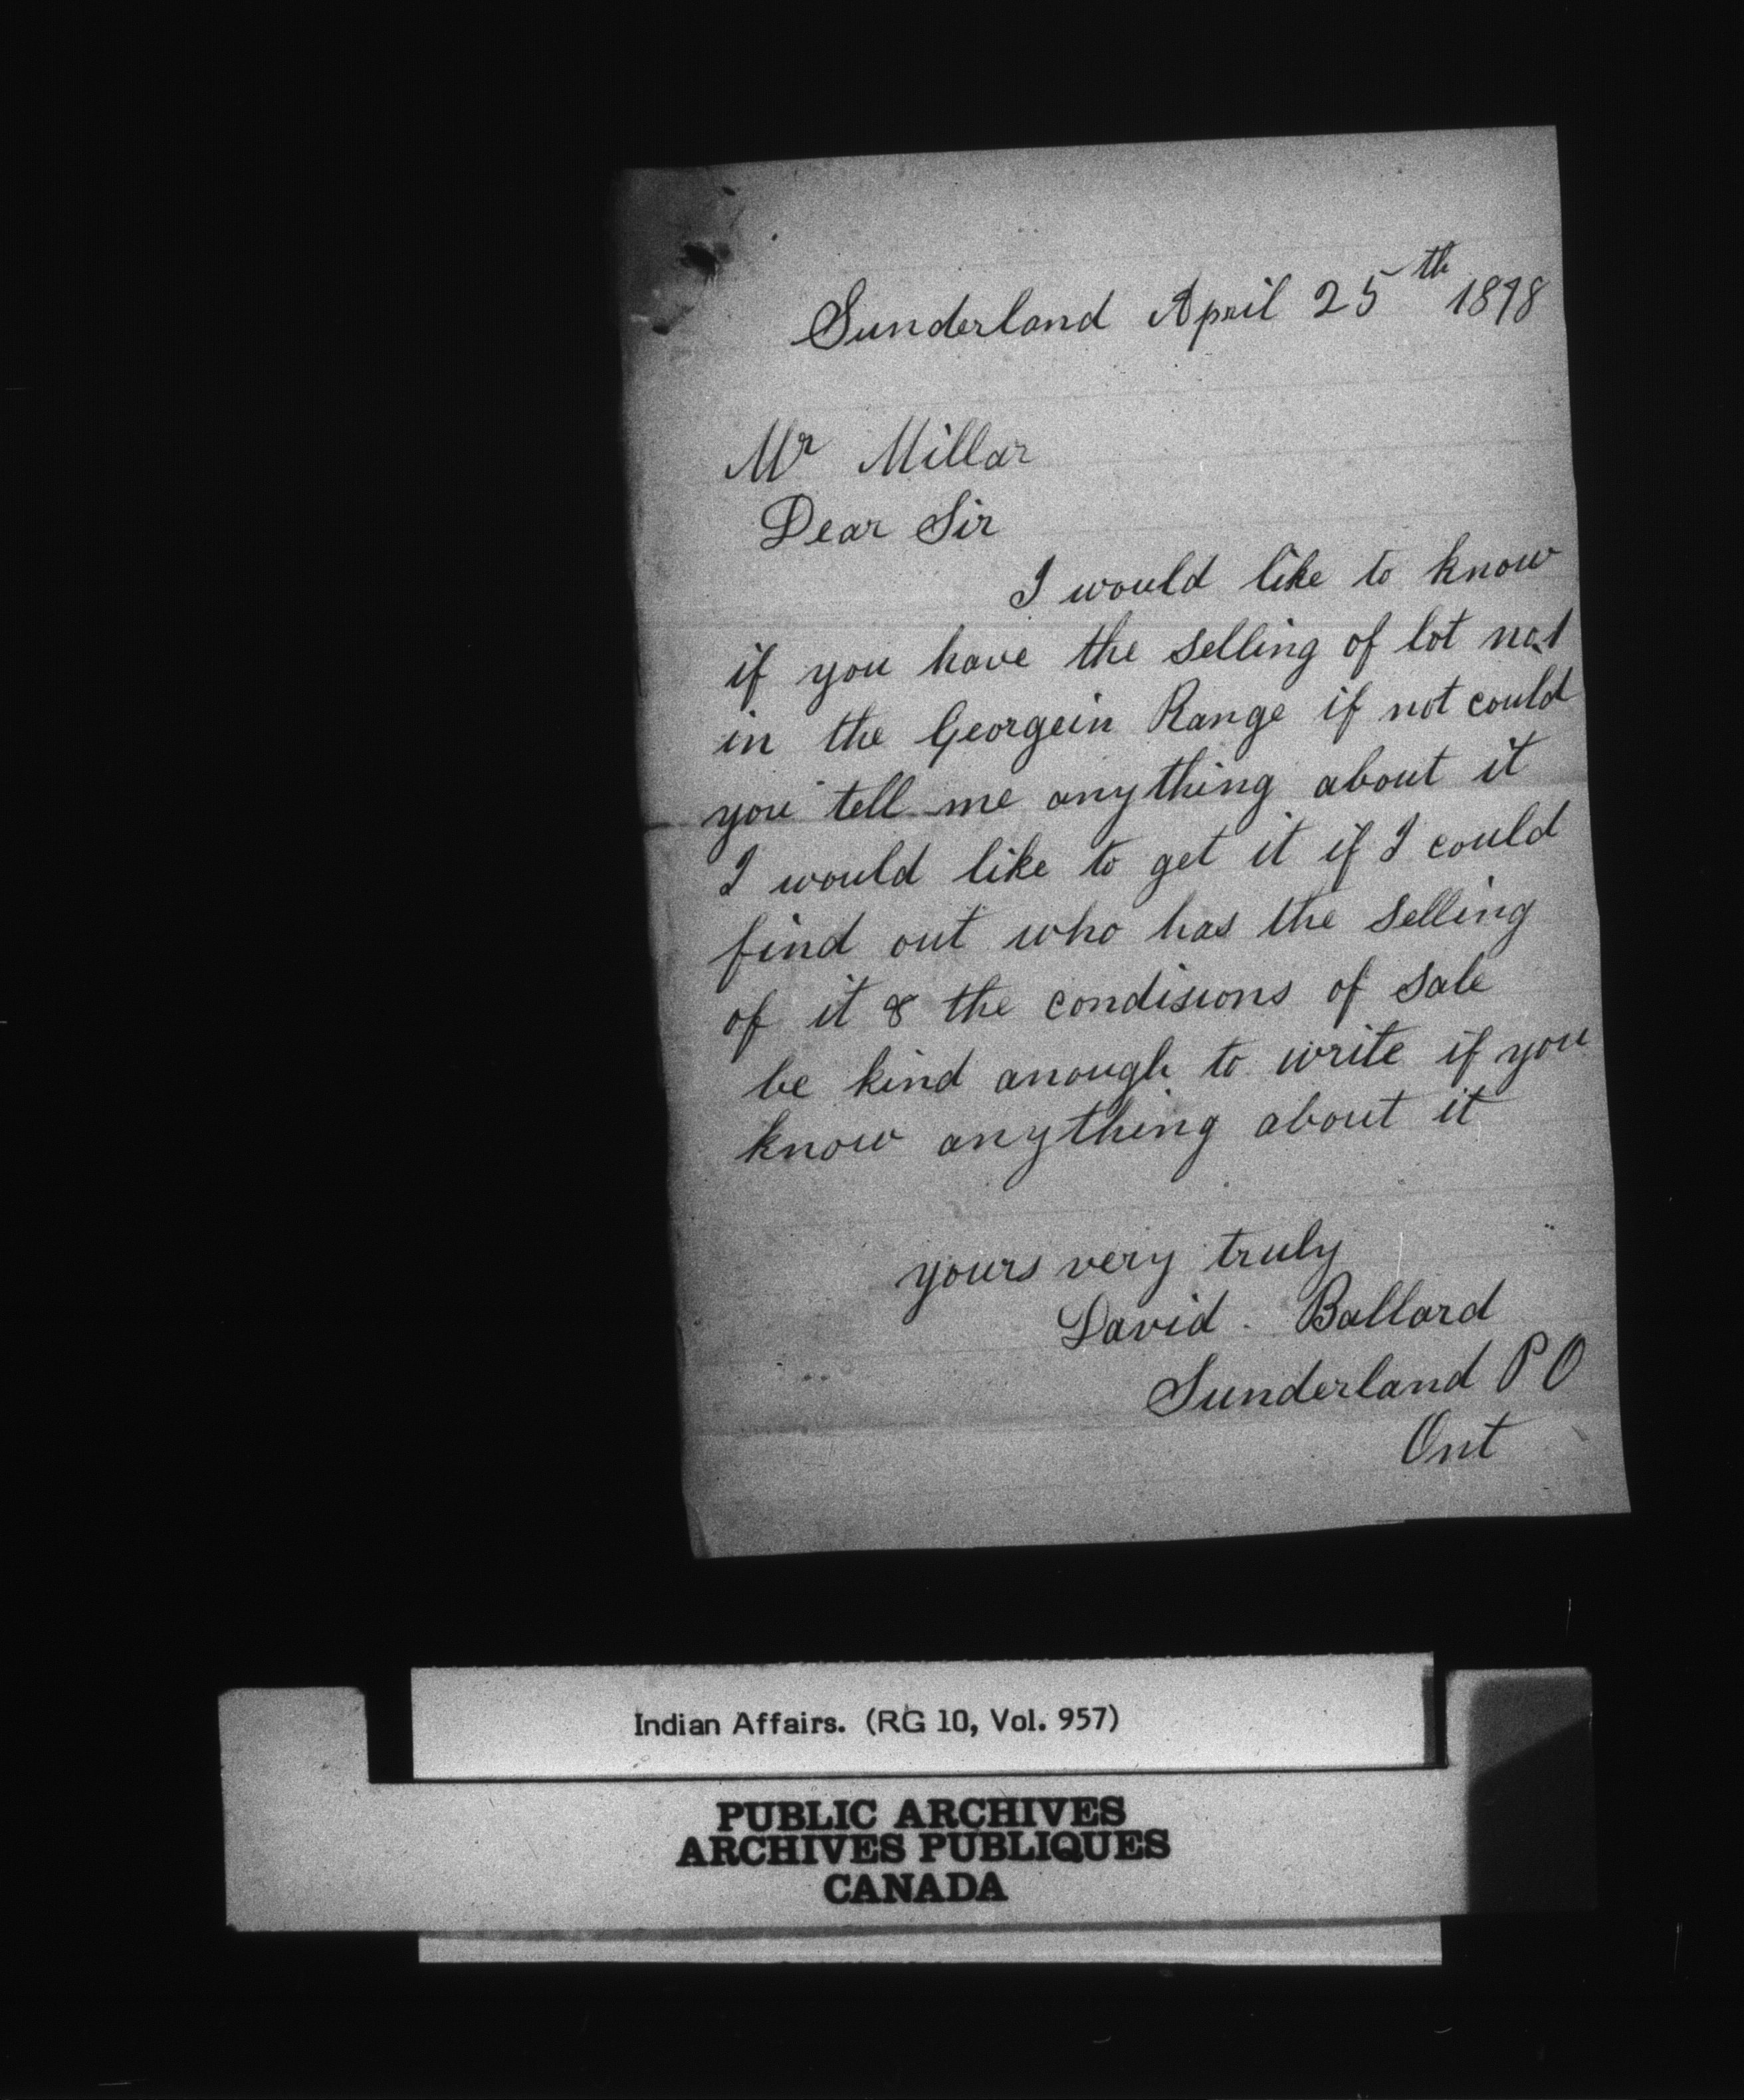 Sunderland April 25th 1898
Mr Millar
Dear Sir
I would like to know
if you have the selling of lot no 1
in the Georgein Range if not could
you tell me anything about it
I would like to get it if I could
find out who has the selling
of it & the condisions of sale
be kind anough to write if you
know anything about it
yours very truly
David. Ballard
Sunderland P O
Ont
Indian Affairs. (RG 10, Vol. 957)
PUBLIC ARCHIVES
ARCHIVES PUBLIQUES
CANADA